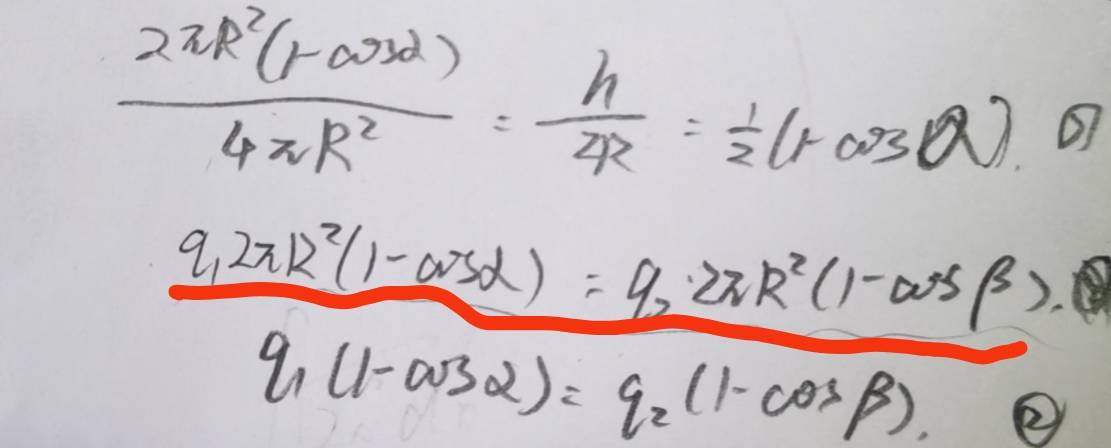 2πR²(1-cosα) / 4πR² = h / 2R = ½(1-cosα).
q₁2πR²(1-cosα) = q₂·2πR²(1-cosβ).
q₁(1-cosα) = q₂(1-cosβ). ②